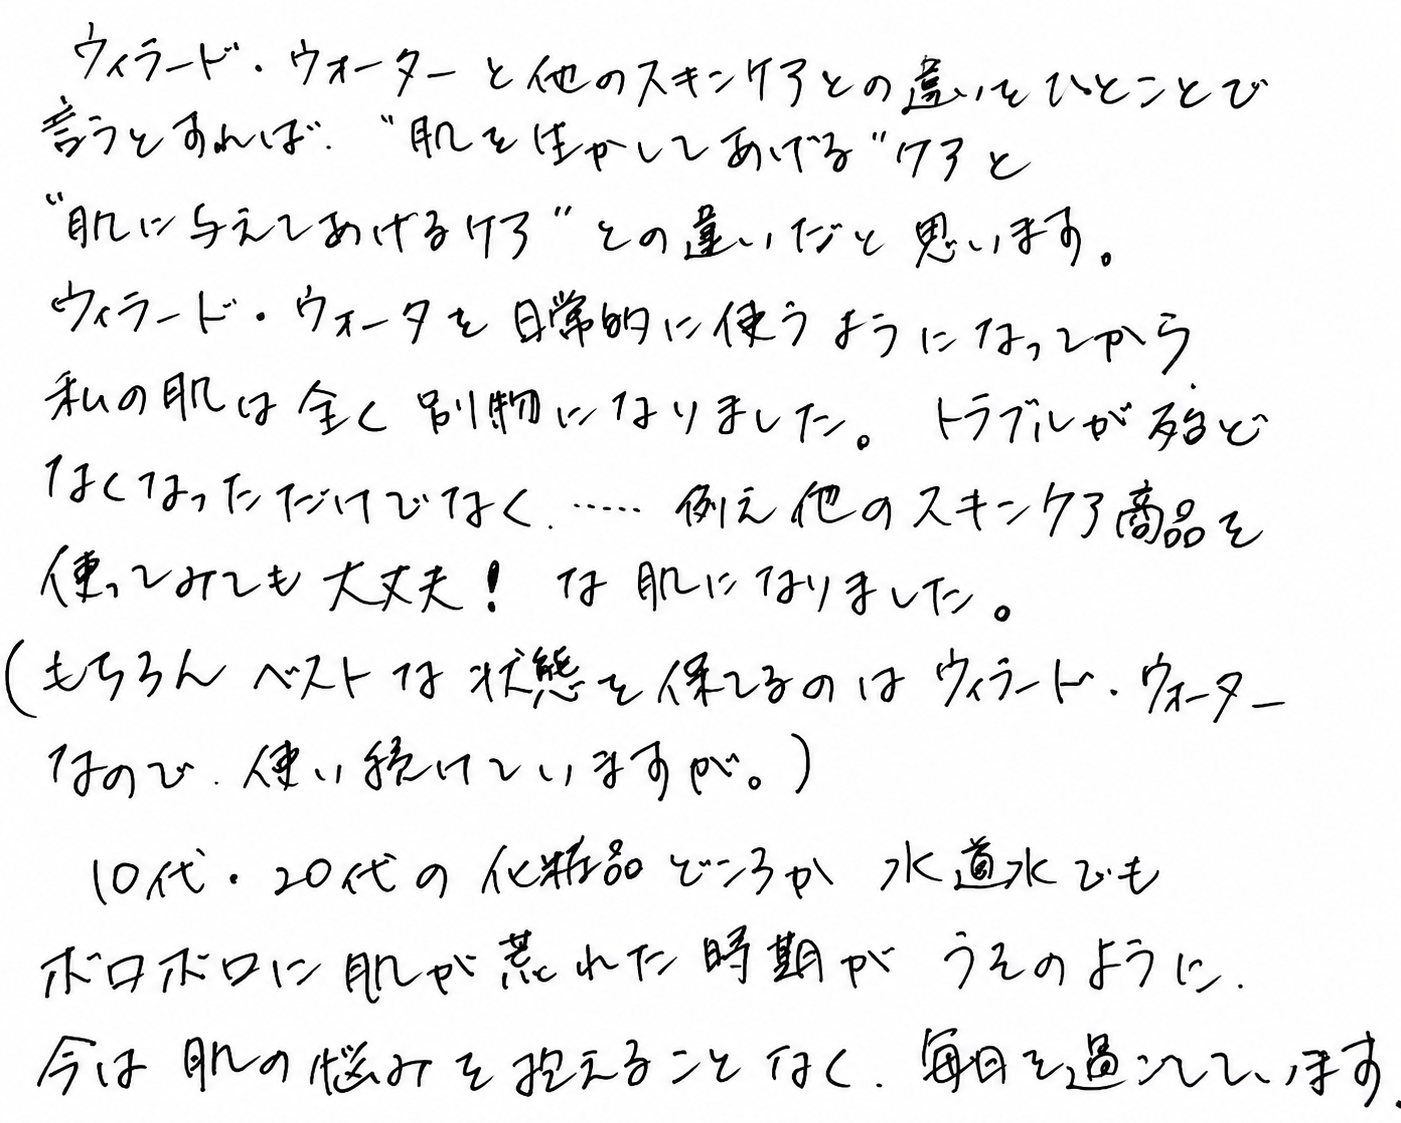 ウィラード・ウォーターと他のスキンケアとの違いをひとことで
言うとすれば、“肌を生かしてあげる”ケアと
“肌に与えてあげるケア”との違いだと思います。
ウィラード・ウォータを日常的に使うようになってから
私の肌は全く別物になりました。トラブルが殆ど
なくなっただけでなく、……例え他のスキンケア商品を
使ってみても大丈夫!な肌になりました。
(もちろんベストな状態を保てるのはウィラード・ウォーター
なので、使い続けていますが。)
10代・20代の化粧品どころか水道水でも
ボロボロに肌が荒れた時期がうそのように、
今は肌の悩みを抱えることなく、毎日を過ごしています.